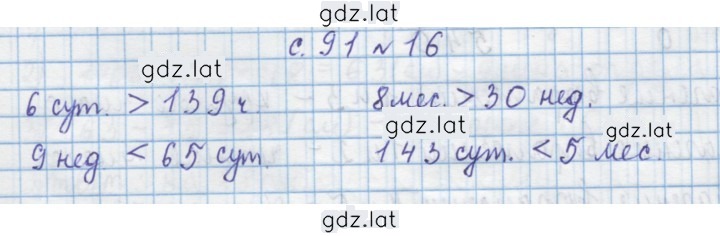 gdz.lat
с. 91 №16
gdz.lat
6 сут. > 139 ч. 8 мес. > 30 нед.
gdz.lat gdz.lat
9 нед < 65 сут. 143 сут. < 5 мес.
gdz.lat